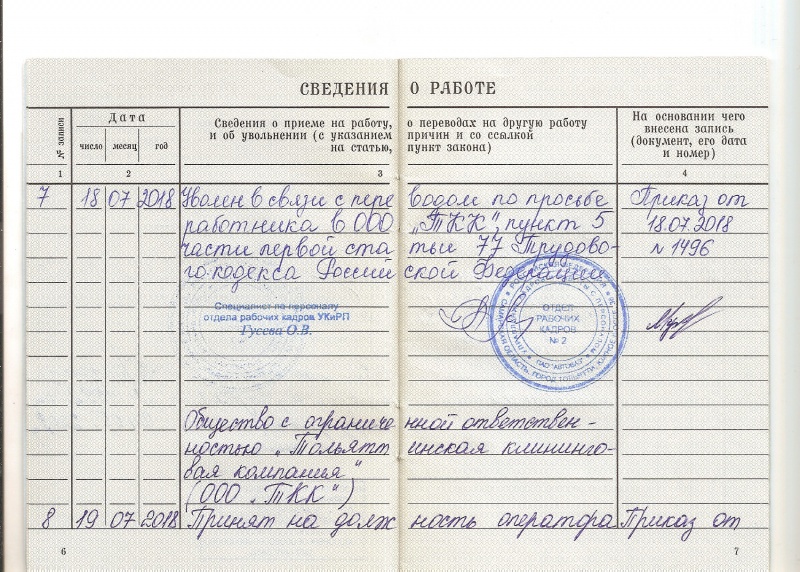 СВЕДЕНИЯ О РАБОТЕ
№ записи
Дата
число месяц год
Сведения о приеме на работу, о переводах на другую работу
и об увольнении (с указанием причин и со ссылкой
на статью, пункт закона)
На основании чего
внесена запись
(документ, его дата
и номер)
1 2 3 4
7 18 07 2018 Уволен в связи с переводом по просьбе Приказ от
работника в ООО „ТКК“, пункт 5 18.07.2018
части первой статьи 77 Трудово- № 1496
го кодекса Российской Федерации
Специалист по персоналу
отдела рабочих кадров УКиРП
Гусева О.В.
ОТДЕЛ
РАБОЧИХ
КАДРОВ
№ 2
ПАО "АВТОВАЗ"
Общество с ограниченной ответствен-
ностью „Тольяттинская клининго-
вая компания“
(ООО „ТКК“)
8 19 07 2018 Принят на должность оператора Приказ от
6 7